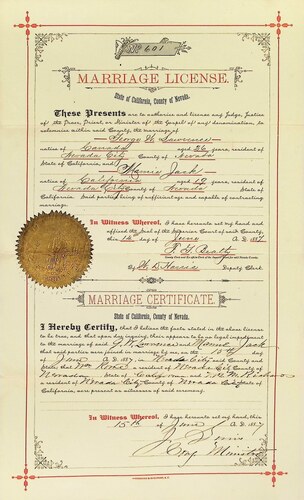 No 601
MARRIAGE LICENSE.
State of California, County of Nevada.
These Presents are to authorize and license any Judge, Justice
of the Peace, Priest, or Minister of the Gospel of any denomination, to
solemnize within said County, the marriage of
George W. Lawrence
native of Canada aged 26 years, resident of
Nevada City County of Nevada
State of California, and Mamie Jack
native of California aged 19 years, resident of
Nevada City County of Nevada State of
California. Said parties being of sufficient age and capable of contracting
marriage.
In Witness Whereof, I have hereunto set my hand and
affixed the Seal of the Superior Court of said County,
this 15 day of June A.D. 1887
F. G. Beatty
By Deputy Clerk
MARRIAGE CERTIFICATE.
State of California, County of Nevada.
I Hereby Certify, that I believe the facts stated in the above license
to be true, and that upon due inquiry there appears to be no legal impediment
to the marriage of said G. W. Lawrence and Mamie Jack
that said parties were joined in marriage by me on the 15th day
of June A.D. 1887, in Nevada City and County
and State; that a resident of Nevada City County of
Nevada State of California, and
a resident of Nevada City County of Nevada State of California,
are present as witnesses of said ceremony.
In Witness Whereof, I have hereunto set my hand, this
15th day of June A.D. 1887
J. Sims
Minister